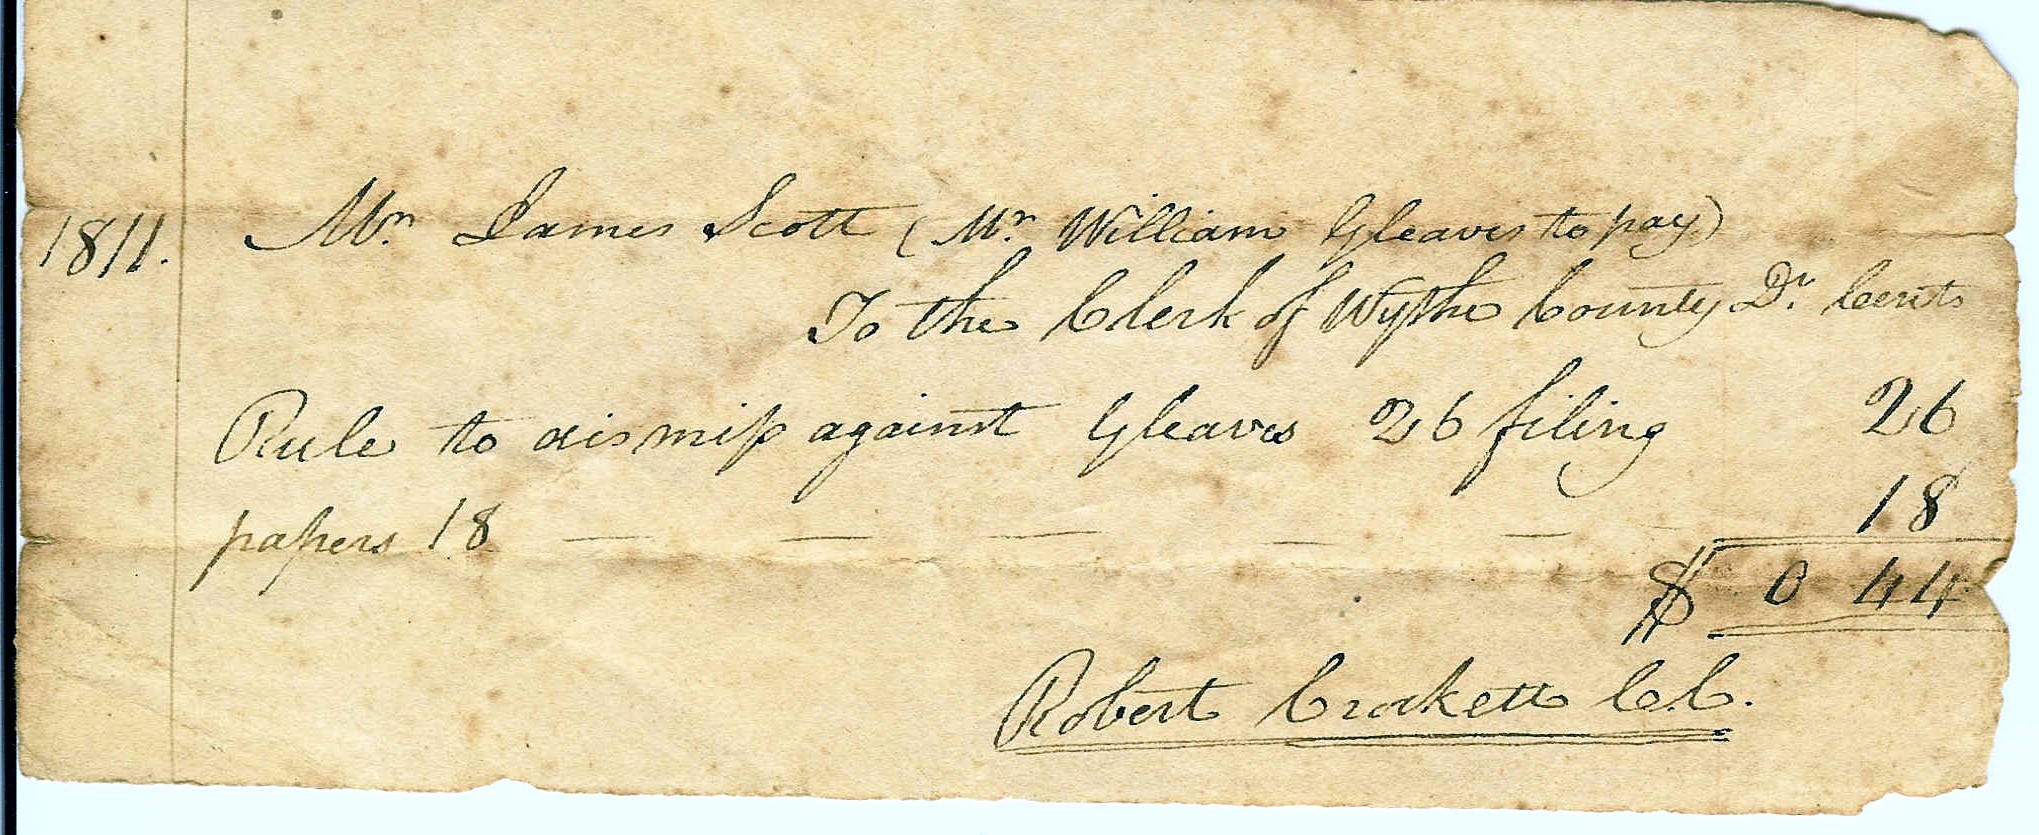 1811. Mr. James Scott (Mr. William Gleaves to pay)
To the Clerk of Wythe County Dr. Cents
Rule to dismiſs against Gleaves 26 filing 26
papers 18 — — — — — 18
$ 0 44
Robert Crockett C.C.